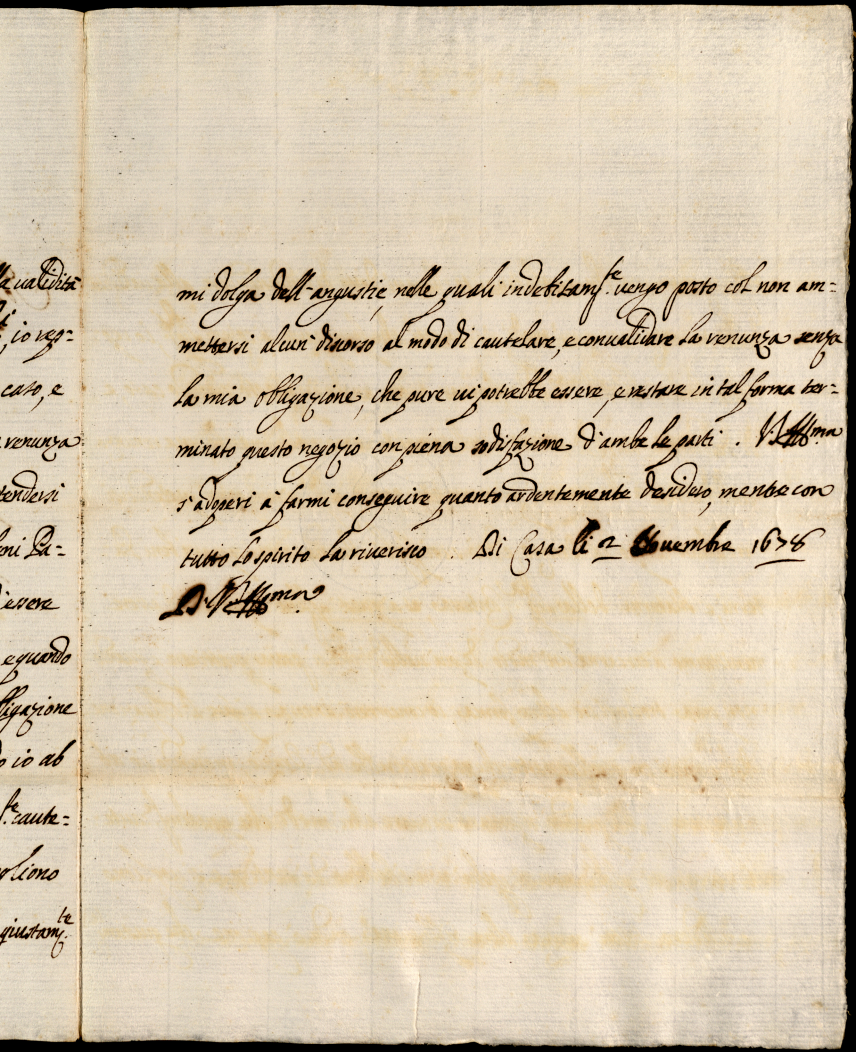 la validità
io rep=
caso, e
renunza
tendersi
Pa=
essere
e quando
bligazione
io ab
caute=
gliono
giustam.te
mi dolga dell'angustie, nelle quali indebitam.te vengo posto col non am=
mettersi alcun' discorso al modo di cautelare, e convalidare la renunza senza
la mia obbligazione, che pure vi potrebbe essere, e restare in tal forma ter=
minato questo negozio con piena sodisfazione d'ambe le parti. V.S. Ill.ma
s'adoperi à farmi conseguire quanto ardentemente desidero, mentre con
tutto lo spirito la riverisco. Di Casa li 2 Novembre 1678
D. V.S. Ill.ma